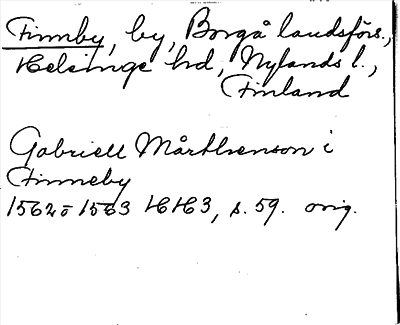 Finnby, by, Borgå landsförs.,
Helsinge hd, Nylands l.,
Finland
Gabriell Mårthenson i
Finneby
1562 o 1563 HH3, s. 59. orig.